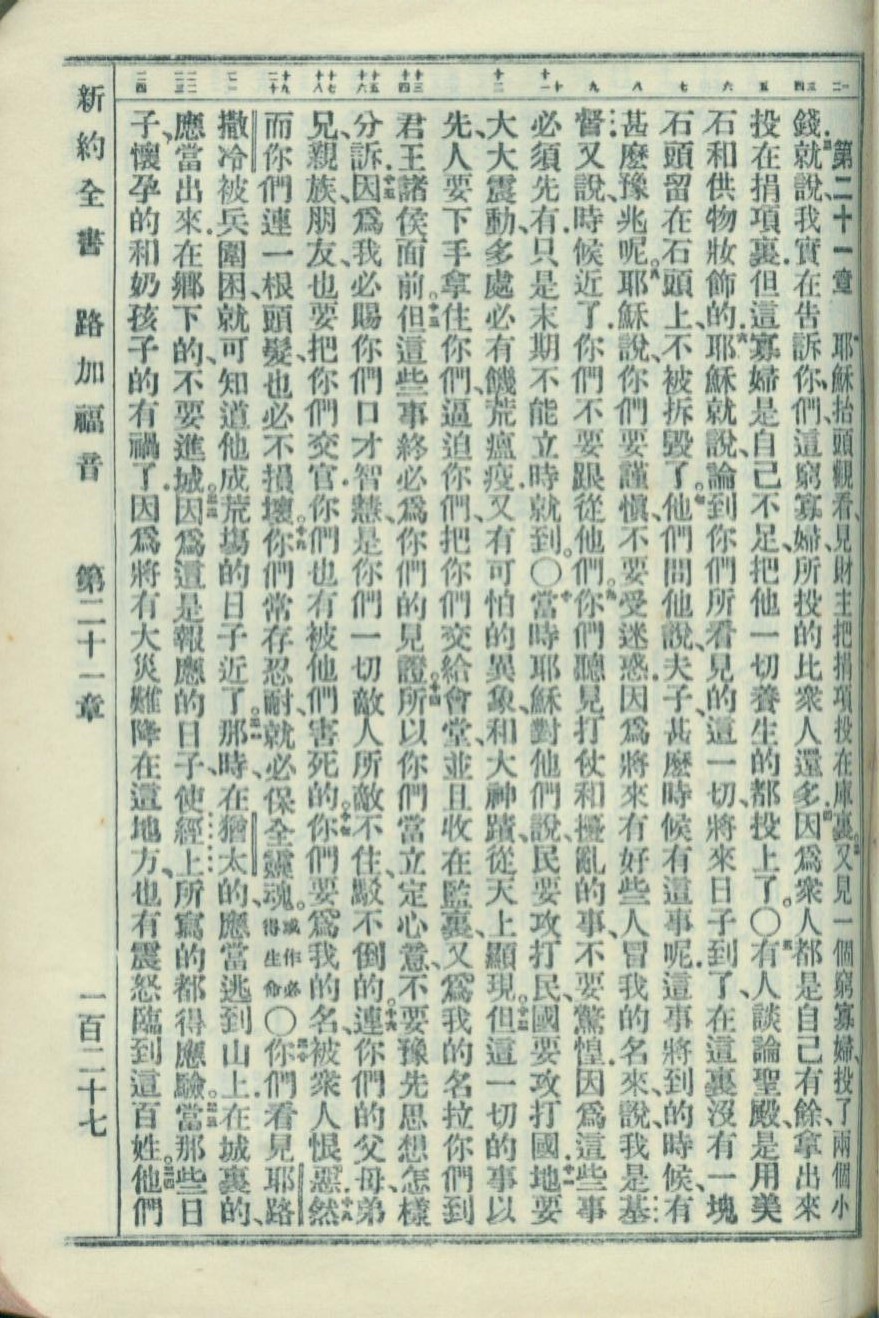 第二十一章 耶穌抬頭觀看、見財主把捐項投在庫裏、又見一個窮寡婦、投了兩個小
錢、就說、我實在告訴你們、這窮寡婦、所投的比衆人還多、因爲衆人都是自己有餘、拿出來
投在捐項裏、但這寡婦是自己不足、把他一切養生的都投上了。〇有人談論聖殿、是用美
石和供物妝飾的、耶穌就說、論到你們所看見的這一切、將來日子到了、在這裏沒有一塊
石頭留在石頭上、不被拆毀了。他們問他說、夫子、甚麽時候有這事呢、這事將到的時候、有
甚麽豫兆呢。耶穌說、你們要謹愼、不要受迷惑、因爲將來有好些人冒我的名來、說、我是基
督、又說、時候近了、你們不要跟從他們。你們聽見打仗和擾亂的事、不要驚惶、因爲這些事
必須先有、只是末期不能立時就到。〇當時耶穌對他們說、民要攻打民、國要攻打國、地要
大大震動、多處必有饑荒瘟疫、又有可怕的異象、和大神蹟、從天上顯現。但這一切的事以
先、人要下手拿住你們、逼迫你們、把你們交給會堂、並且收在監裏、又爲我的名拉你們到
君王諸侯面前。但這些事終必爲你們的見證。所以你們當立定心意、不要豫先思想怎樣
分訴、因爲我必賜你們口才智慧、是你們一切敵人所敵不住、駁不倒的。連你們的父母弟
兄、親族、朋友、也要把你們交官、你們也有被他們害死的。你們要爲我的名、被衆人恨惡、然
而你們連一根頭髮、也必不損壞。你們常存忍耐、就必保全靈魂。或作必得生命〇你們看見耶路
撒冷被兵圍困、就可知道他成荒場的日子近了。那時在猶太的、應當逃到山上、在城裏的、
應當出來、在鄉下的、不要進城。因爲這是報應的日子、使經上所寫的都得應驗。當那些日
子、懷孕的和奶孩子的有禍了、因爲將有大災難降在這地方、也有震怒臨到這百姓。他們
新約全書 路加福音 第二十一章 一百二十七